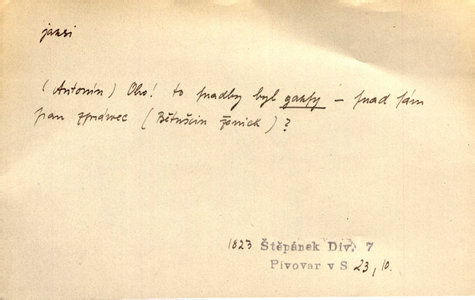 jaksi
(Antonín) Oho! to snadby byl jaksy – snad sám
pan zprávec (Bětušcin ženich)?
1823 Štěpánek Div. 7
Pivovar v S 23, 10.